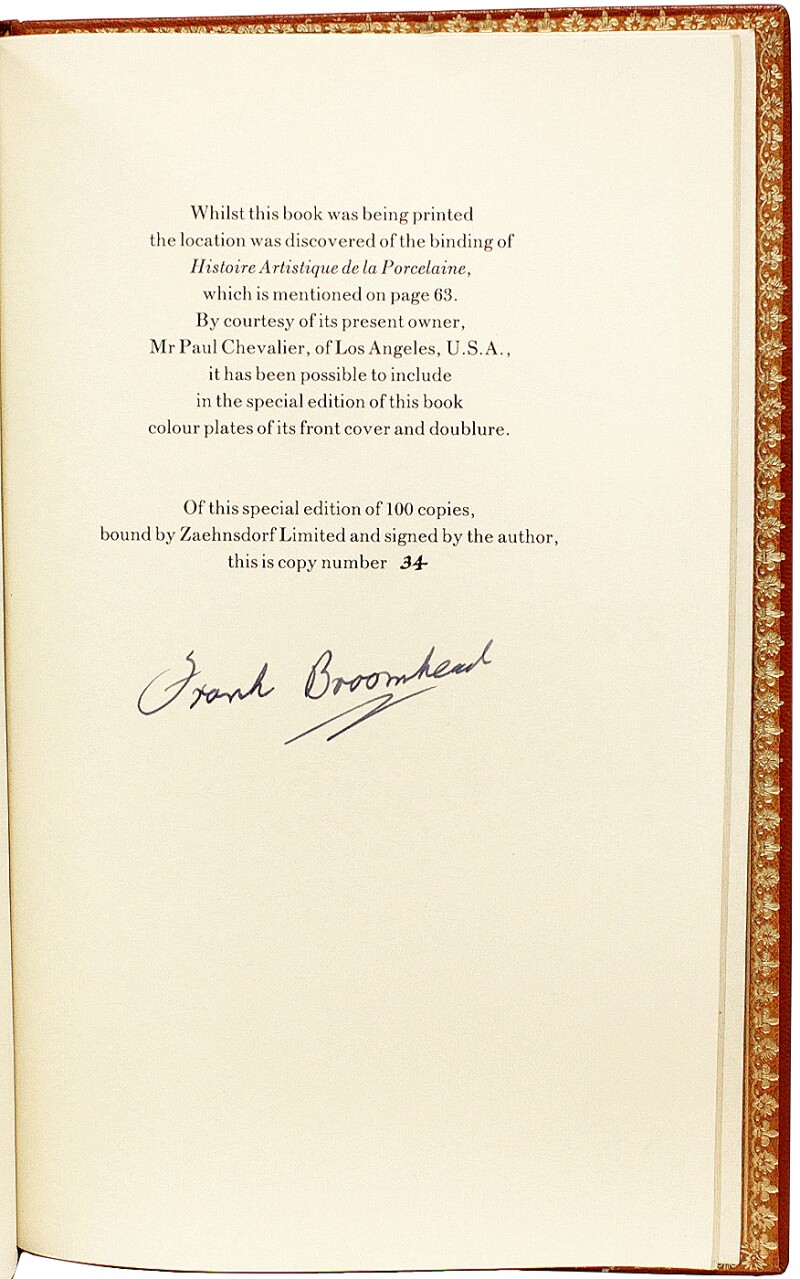 Whilst this book was being printed
the location was discovered of the binding of
Histoire Artistique de la Porcelaine,
which is mentioned on page 63.
By courtesy of its present owner,
Mr Paul Chevalier, of Los Angeles, U.S.A.,
it has been possible to include
in the special edition of this book
colour plates of its front cover and doublure.
Of this special edition of 100 copies,
bound by Zaehnsdorf Limited and signed by the author,
this is copy number 34
Frank Broomhead